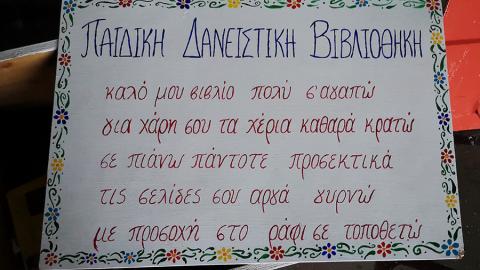 ΠΑΙΔΙΚΗ ΔΑΝΕΙΣΤΙΚΗ ΒΙΒΛΙΟΘΗΚΗ
καλό μου βιβλίο πολύ σ'αγαπώ
για χάρη σου τα χέρια καθαρά κρατώ
σε πιάνω πάντοτε προσεκτικά
τις σελίδες σου αργά γυρνώ
με προσοχή στο ράφι σε τοποθετώ